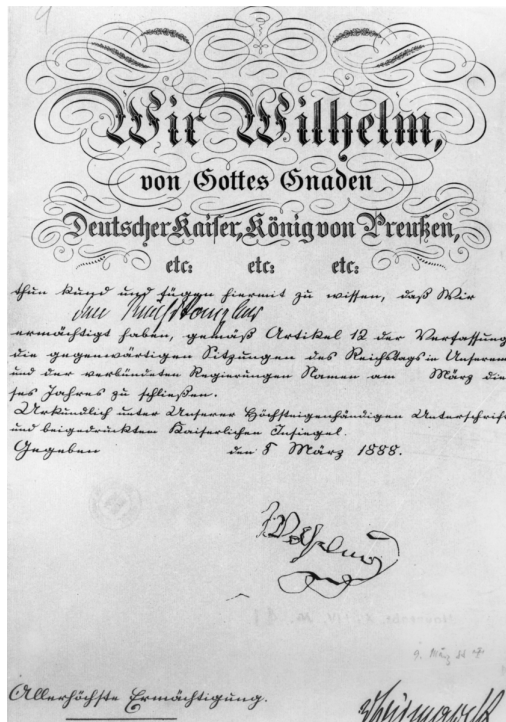 Wir Wilhelm,
von Gottes Gnaden
Deutscher Kaiser, König von Preußen,
etc: etc: etc:
thun kund und fügen hiermit zu wissen, daß Wir
den Reichskanzler
ermächtigt haben, gemäß Artikel 12 der Verfassung
die gegenwärtigen Sitzungen des Reichstags in Unserem
und der verbündeten Regierungen Namen am März die
ses Jahres zu schließen.
Urkundlich unter Unserer Höchsteigenhändigen Unterschrift
und beigedrucktem Kaiserlichen Insiegel.
Gegeben den 8 März 1888.
Wilhelm
9. März 88
Allerhöchste Ermächtigung.
vBismarck